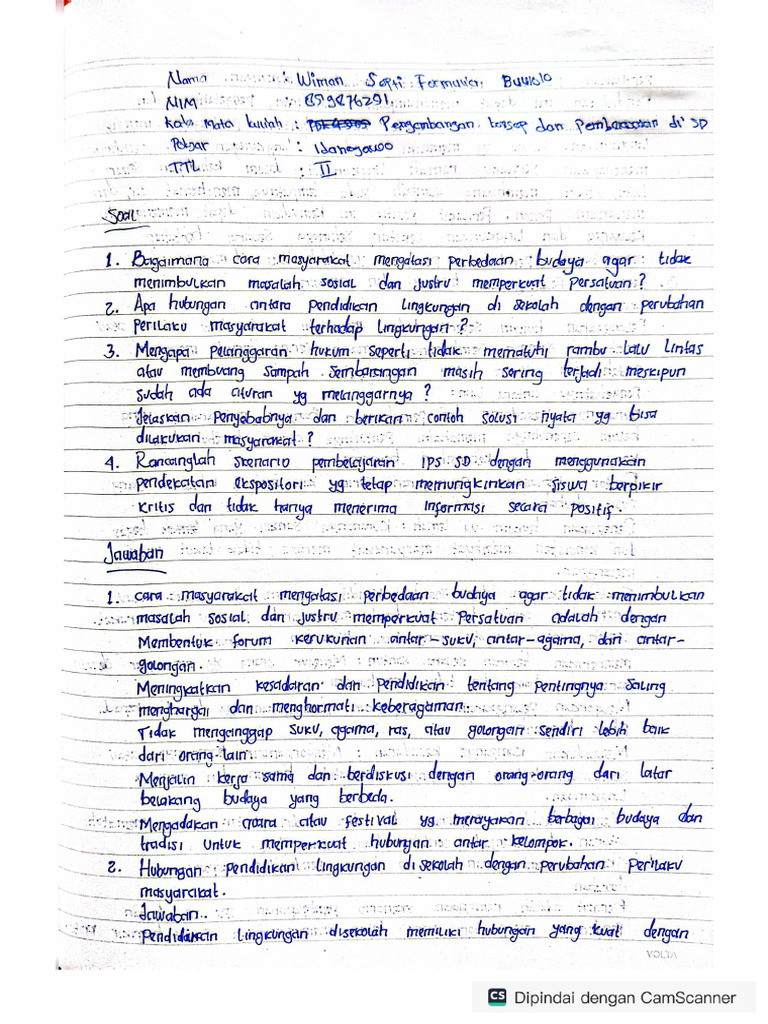 Nama : Wiman Septi Permawan Buulolo
NIM : 859876291
Kode Mata kuliah : Pengembangan konsep dan Pembelajaran di SD
Pokjar : Idanogawo
TTL : II
Soal
1. Bagaimana cara masyarakat mengatasi perbedaan budaya agar tidak
menimbulkan masalah sosial dan justru memperkuat Persatuan ?
2. Apa hubungan antara Pendidikan lingkungan di sekolah dengan perubahan
Perilaku masyarakat terhadap lingkungan ?
3. Mengapa pelanggaran hukum seperti tidak mematuhi rambu lalu lintas
atau membuang sampah sembarangan masih sering terjadi meskipun
sudah ada aturan yg melanggarnya ?
Jelaskan Penyebabnya dan berikan contoh solusi nyata yg bisa
dilakukan masyarakat ?
4. Rancanglah skenario pembelajaran IPS SD dengan menggunakan
pendekatan ekspositori yg tetap memungkinkan siswa berpikir
kritis dan tidak hanya menerima informasi secara positif.
Jawaban
1. cara masyarakat mengatasi perbedaan budaya agar tidak menimbulkan
masalah sosial dan justru memperkuat Persatuan adalah dengan
Membentuk forum kerukunan antar-suku, antar-agama, dan antar-
golongan.
Meningkatkan kesadaran dan pendidikan tentang pentingnya saling
menghargai dan menghormati keberagaman.
Tidak menganggap suku, agama, ras, atau golongan sendiri lebih baik
dari orang lain
Menjalin kerja sama dan berdiskusi dengan orang-orang dari latar
belakang budaya yang berbeda.
Mengadakan acara atau festival yg merayakan berbagai budaya dan
tradisi untuk memperkuat hubungan antar kelompok.
2. Hubungan pendidikan lingkungan disekolah dengan perubahan Perilaku
masyarakat.
Jawaban
Pendidikan lingkungan disekolah memiliki hubungan yang kuat dengan
VOLTA
CS Dipindai dengan CamScanner